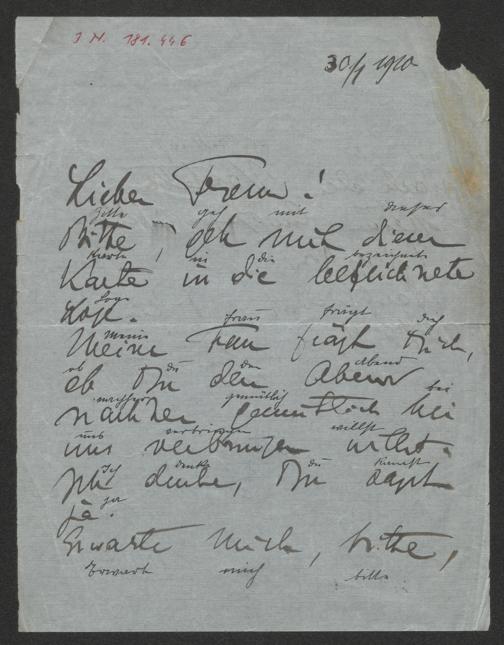 J.N. 181.446
30/1 1910
Lieber Freund!
bitte geh mit dieser
Bitte, geh mit dieser
Karte in die bezeichnete
Karte in die bezeichnete
Loge
Loge.
meine Frau frägt dich
Meine Frau frägt Dich,
ob du den Abend
ob Du den Abend
nachher gemütlich bei
nachher gemütlich bei
uns verbringen willst
uns verbringen willst.
Ich denke du
Ich denke, Du sagst
ja
ja.
Erwarte mich, bitte,
Erwart mich bitte